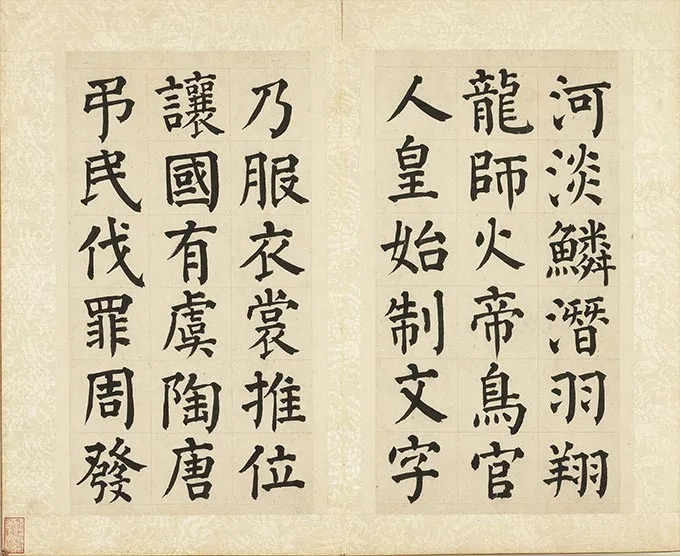 河淡鱗潛羽翔
龍師火帝鳥官
人皇始制文字
乃服衣裳推位
讓國有虞陶唐
弔民伐罪周發